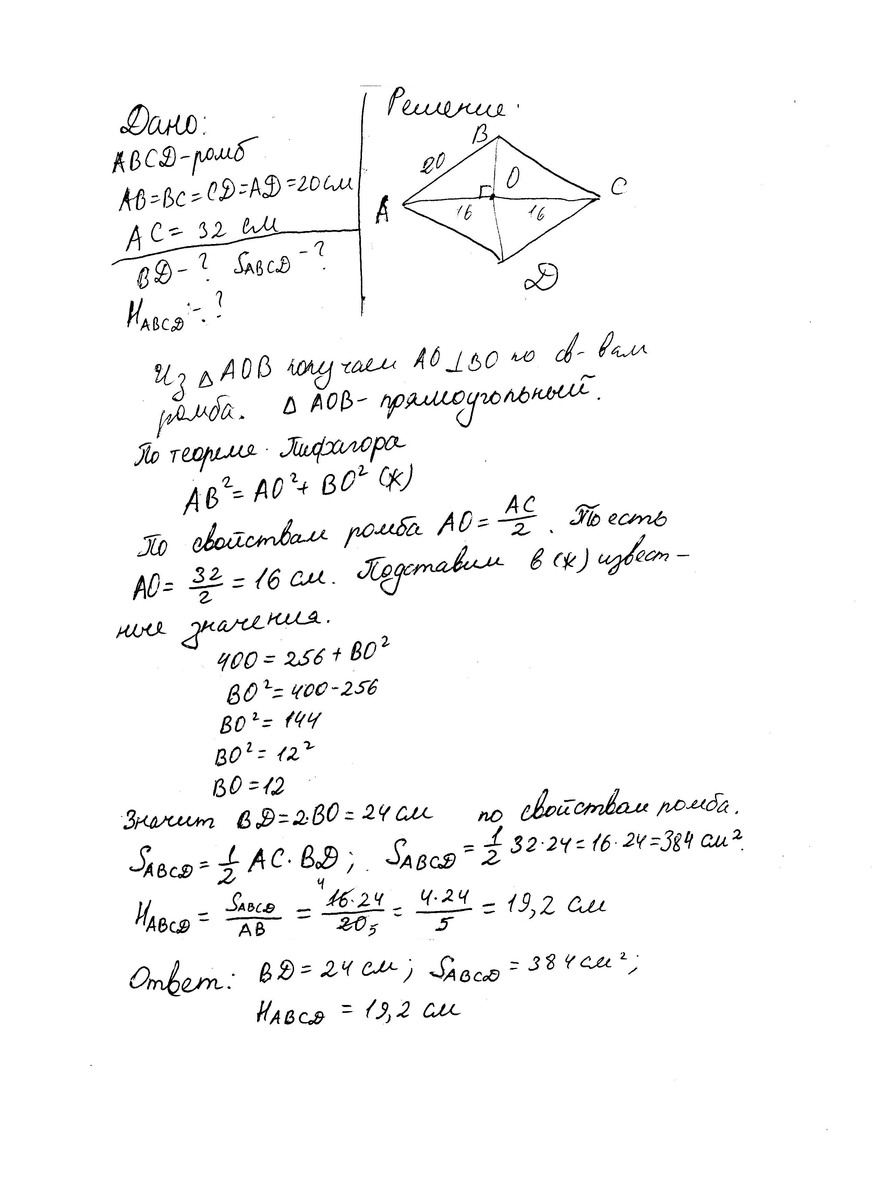 Дано:
ABCD-ромб
AB=BC=CD=AD=20см
AC= 32 см
BD-? SABCD-?
HABCD-?
Решение.
B
20
O
C
A
16
16
D
Из △ AOB получаем AO⊥BO по св-вам
ромба. △ AOB- прямоугольный.
По теореме Пифагора
AB²= AO²+ BO² (*)
По свойствам ромба AO= AC/2. То есть
AO= 32/2 = 16 см. Подставим в (*) извест-
ные значения.
400= 256 + BO²
BO²= 400-256
BO²= 144
BO²= 12²
BO=12
Значит BD=2·BO=24 см по свойствам ромба.
SABCD= 1/2 AC·BD; SABCD= 1/2 32·24=16·24=384 см².
HABCD = SABCD/AB = 4 16·24/20 5 = 4·24/5 = 19,2 см
Ответ: BD=24 см; SABCD=384см²;
HABCD = 19,2 см